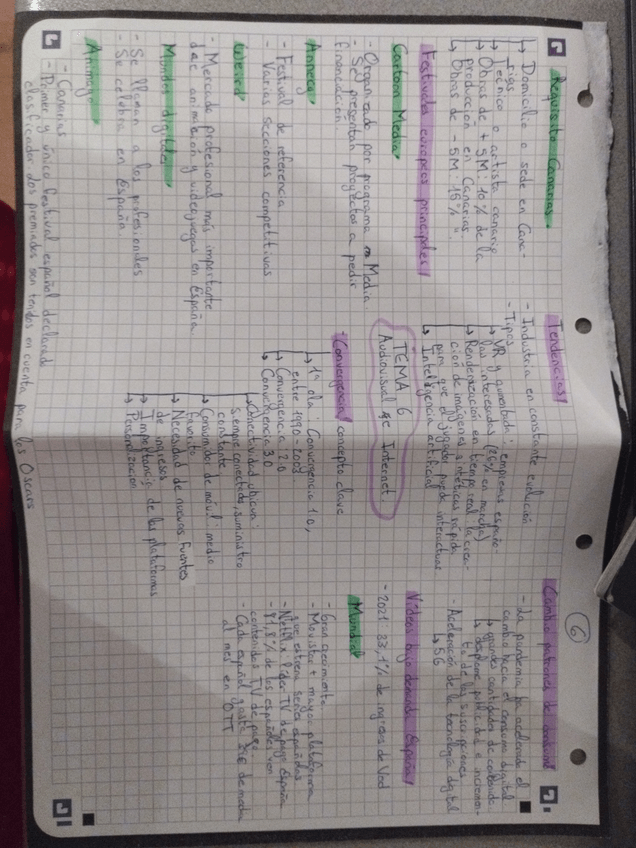 Requisito Canarias
↳ Domicilio o sede en Cana-
rias
↳ Técnico o artista canario
↳ Obras de + 5M: 10% de la
producción en Canarias.
↳ Obras de - 5M: 15% "
Festivales europeos principales
Cartoon Media
- Organizado por programa Media.
- Se presentan proyectos a pedir
financiación.
Annecy
- Festival de referencia
- Varias secciones competitivas
Weird
- Mercado profesional más importante
de animación y videojuegos en España
Mundos digitales
- Se llaman a los profesionales
- Se celebra en España.
Animayo
- Canarias
- Primer y único festival español declarado
clasificador los premiados son tenidos en cuenta para los Oscars
Tendencias
- Industria en constante evolución
- Tipos
↳ VR y aumentada: empresas españo-
las interesadas (26% en marcha)
↳ Renderización en tiempo real la crea-
ción de imágenes sintéticas rápida
para que el jugador pueda interactuar.
↳ Inteligencia artificial
TEMA 6
Audiovisual e Internet.
- Convergencia concepto clave
↳ 1ª ola: Convergencia 1.0,
entre 1990-2003
↳ Convergencia 2.0
↳ Convergencia 3.0
↳ Conectividad ubicua:
siempre conectado, suministro
constante
↳ Consumidor de móvil: medio
favorito
↳ Necesidad de nuevas fuentes
de ingresos
↳ Importancia de las plataformas
↳ Personalización
6
Cambio patrones de consumo
- La pandemia ha acelerado el
cambio hacia el consumo digital
↳ grandes cantidades de contenido.
↳ desplome publicidad e incremen-
to de las suscripciones
- Aceleración de la tecnología digital
↳ 5G
Vídeos bajo demanda España
- 2021: 33,1% de ingresos de Vod
Mundial
- Gran crecimiento
- Movistar + mayor plataforma
que estrena series españolas
- Netflix líder TV de pago España
- 81,8% de los españoles ven
contenidos TV de pago.
- Cada español gasta de media
al mes en OTT